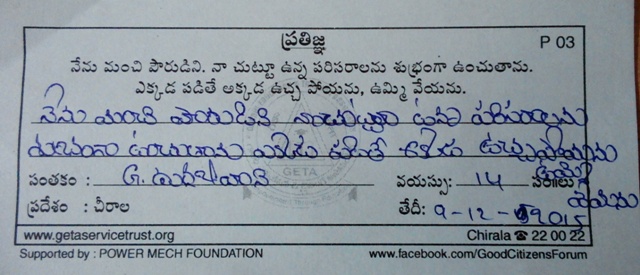 ప్రతిజ్ఞ
P 03
నేను మంచి పౌరుడిని. నా చుట్టూ ఉన్న పరిసరాలను శుభ్రంగా ఉంచుతాను.
ఎక్కడ పడితే అక్కడ ఉచ్చ పోయను, ఉమ్మి వేయను.
నేను మంచి పౌరుడిని నాచుట్టూ ఉన్న పరిసరాలను
శుభ్రంగా ఉంచుతాను ఎక్కడ పడితే అక్కడ ఉచ్చపోయను
ఉమ్మి
వేయను
సంతకం : G.
వయస్సు: 14 సం॥లు
ప్రదేశం : చీరాల
తేదీ: 9-12-2015
GETA
www.getaservicetrust.org
Chirala ☎ 22 00 22
Supported by : POWER MECH FOUNDATION
www.facebook.com/GoodCitizensForum